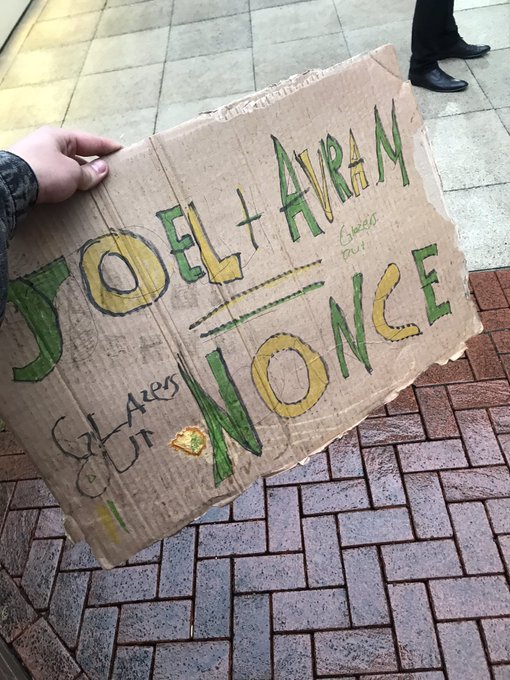 JOEL + AVRAM
Glazers
out
NONCE
GLAzers
OUT